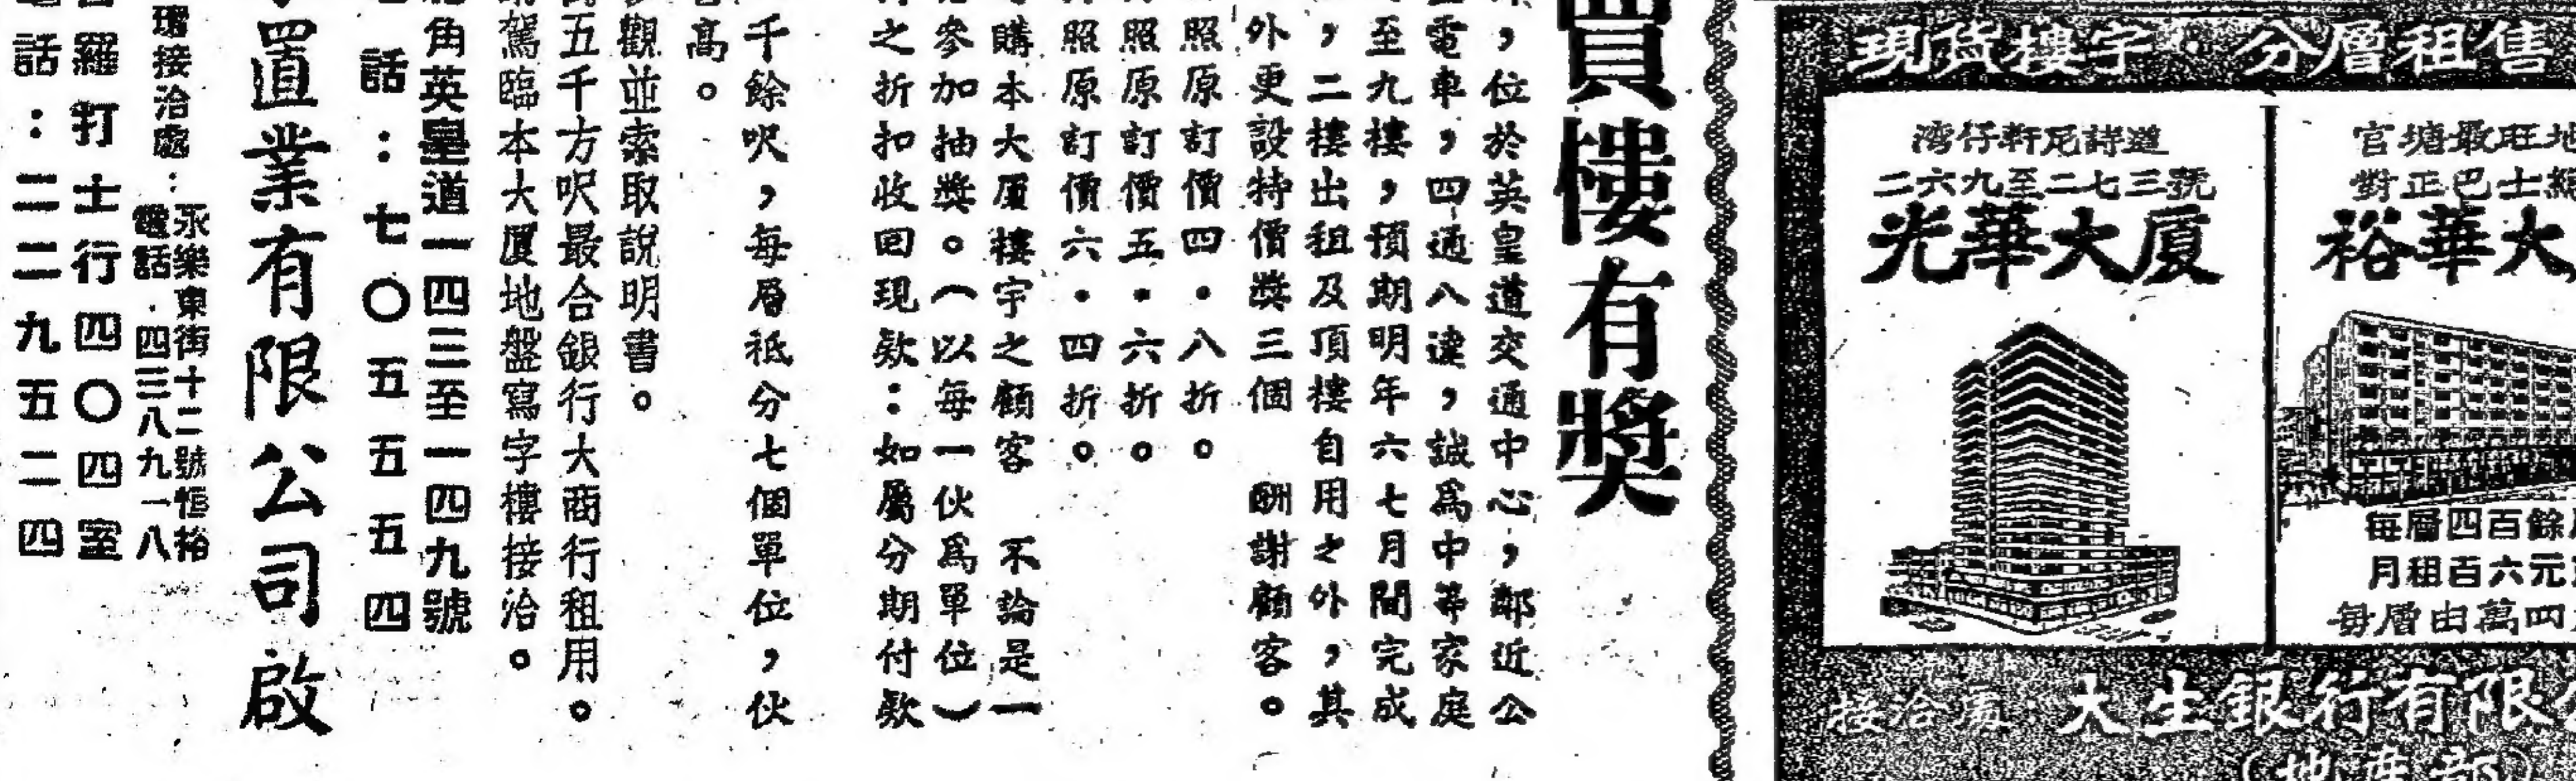 現貨樓宇・分層租售
湾仔軒尼詩道
二六九至二七三號
光華大厦
官塘最旺地
對正巴士
裕華大
每層四百餘
月租百六元
每層由萬四
接洽處 大生銀行有限
（地產部）
買樓有獎
，位於英皇道交通中心，鄰近公
電車，四通八達，誠爲中等家庭
至九樓，預期明年六七月間完成
，二樓出租及頂樓自用之外，其
外更設特價獎三個 酬謝顧客。
照原訂價四・八折。
照原訂價五・六折。
照原訂價六・四折。
購本大厦樓宇之顧客 不論是一
參加抽獎。（以每一伙爲單位）
之折扣收回現欵：如屬分期付欵
千餘呎，每層祗分七個單位，伙
高。
觀並索取説明書。
五千方呎最合銀行大商行租用。
駕臨本大厦地盤寫字樓接洽。
角英皇道一四三至一四九號
話：七〇五五五四
置業有限公司啟
接洽處：永樂東街十二號恒裕
電話・四三八九一八
羅打士行四〇四室
話：二二九五二四